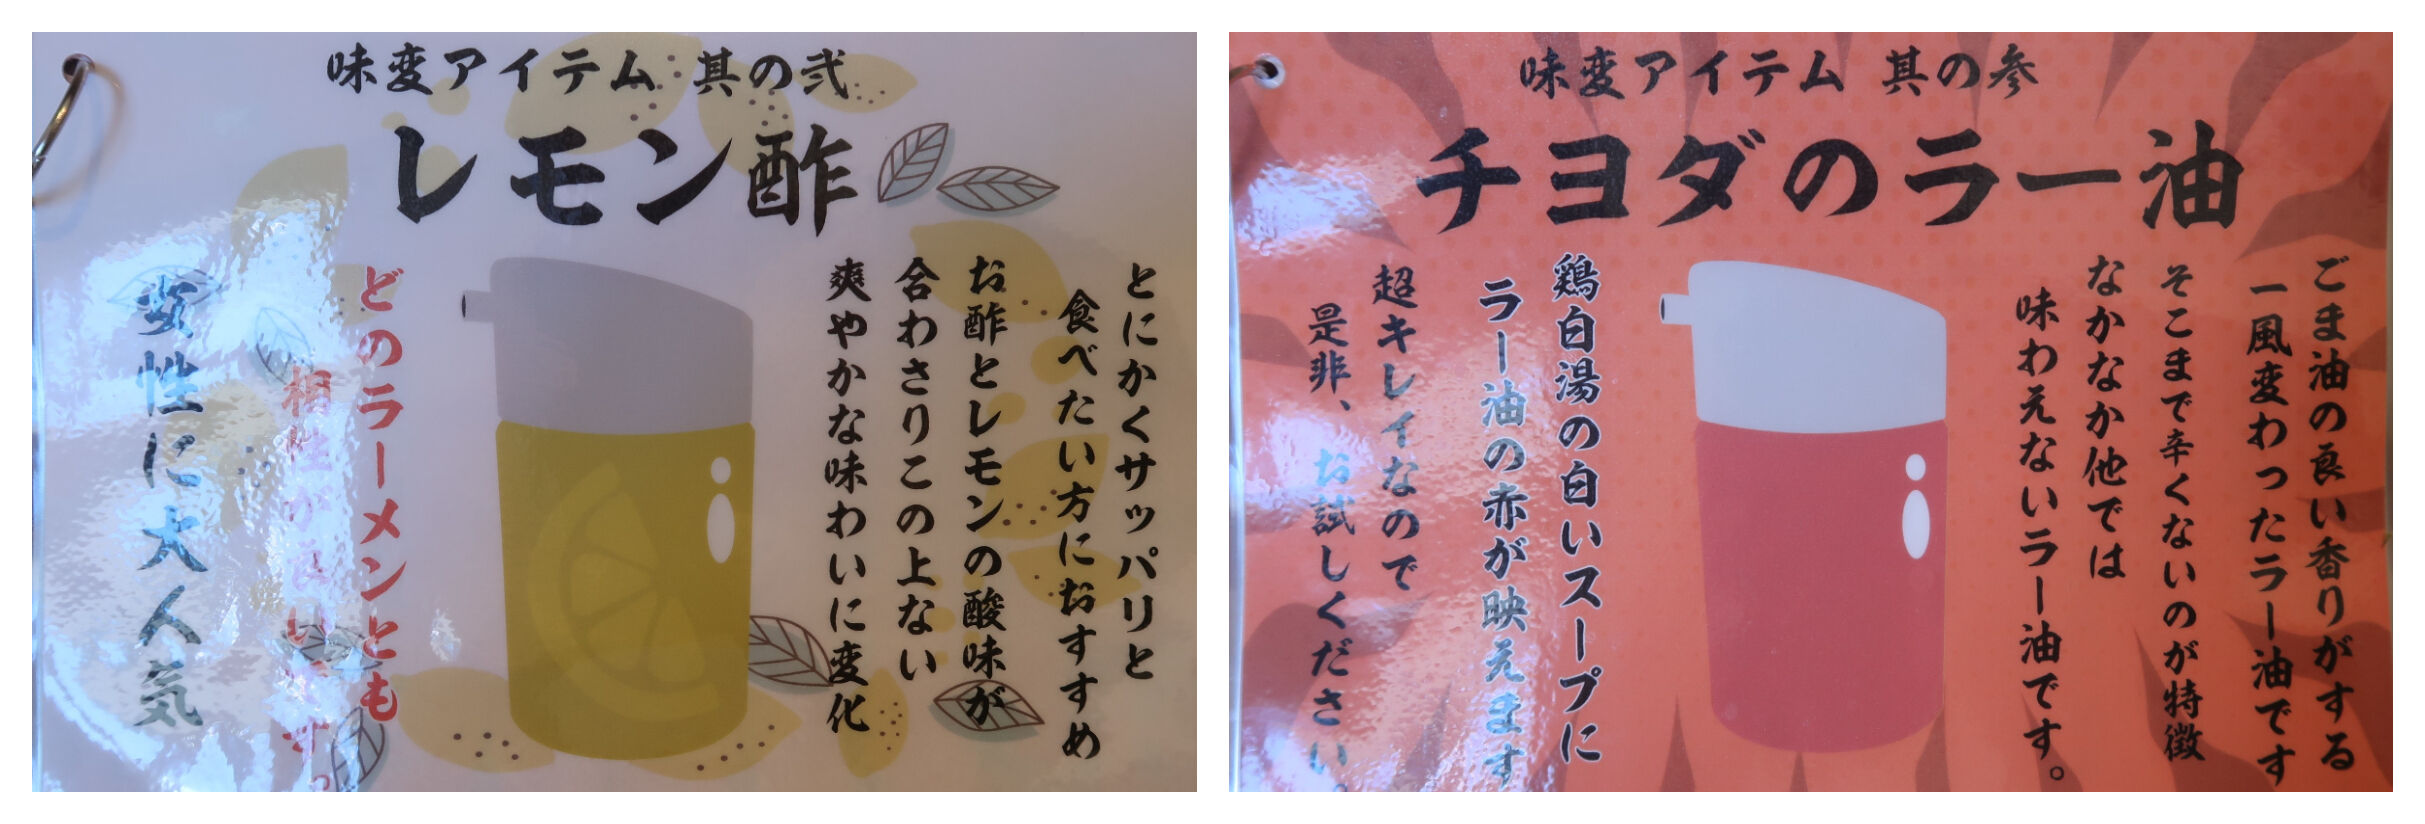 味変アイテム 其の弐
レモン酢
とにかくサッパリと
食べたい方におすすめ
お酢とレモンの酸味が
合わさりこの上ない
爽やかな味わいに変化
どのラーメンとも
相性が良いです。
女性に大人気
味変アイテム 其の参
チヨダのラー油
ごま油の良い香りがする
一風変わったラー油です
そこまで辛くないのが特徴
なかなか他では
味わえないラー油です。
鶏白湯の白いスープに
ラー油の赤が映えます
超キレイなので
是非、お試しください。